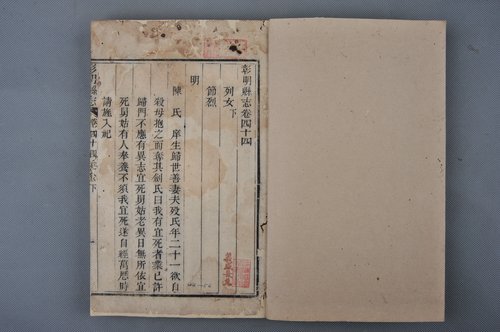 彰明縣志卷四十四
列女下
節烈
明
陳氏 庠生歸世善妻夫歿氏年二十一欲自
殺母抱之而奪其劍氏曰我有宜死者業已許
歸門不應有異志宜死舅姑老異日無所依宜
死舅姑有人奉養不須我宜死遂自經萬歷時
請旌入祀